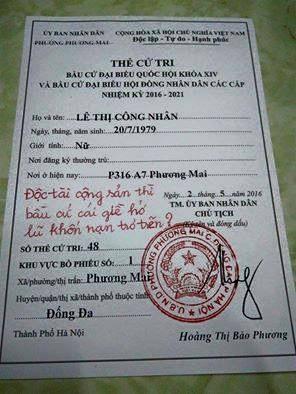 ỦY BAN NHÂN DÂN
PHƯỜNG PHƯƠNG MAI
CỘNG HÒA XÃ HỘI CHỦ NGHĨA VIỆT NAM
Độc lập - Tự do - Hạnh phúc
THẺ CỬ TRI
BẦU CỬ ĐẠI BIỂU QUỐC HỘI KHÓA XIV
VÀ BẦU CỬ ĐẠI BIỂU HỘI ĐỒNG NHÂN DÂN CÁC CẤP
NHIỆM KỲ 2016 - 2021
Họ và tên: LÊ THỊ CÔNG NHÂN
Ngày, tháng, năm sinh: 20/7/1979
Giới tính: Nữ
Nơi đăng ký thường trú:
Nơi ở hiện nay: P316 A7 Phương Mai
Độc tài cộng sản thì
bầu cử cái giề hở
lũ khốn nạn trơ trẽn?
Ngày 2 tháng 5 năm 2016
TM. ỦY BAN NHÂN DÂN
CHỦ TỊCH
(Ký tên và đóng dấu)
SỐ THẺ CỬ TRI: 48
KHU VỰC BỎ PHIẾU SỐ: 1
Xã/phường/thị trấn: Phương Mai
Huyện/quận/thị xã/thành phố thuộc tỉnh:
Đống Đa
Thành Phố Hà Nội
U.B.N.D PHƯỜNG PHƯƠNG MAI Q. ĐỐNG ĐA T.P HÀ NỘI
Hoàng Thị Bảo Phương